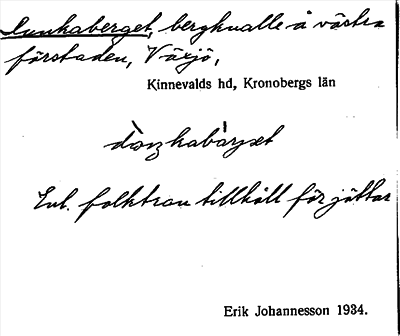 Dunkaberget, bergknalle å västra
förstaden, Växjö,
Kinnevalds hd, Kronobergs län
Enl. folktron tillhåll för jättar
Erik Johannesson 1934.